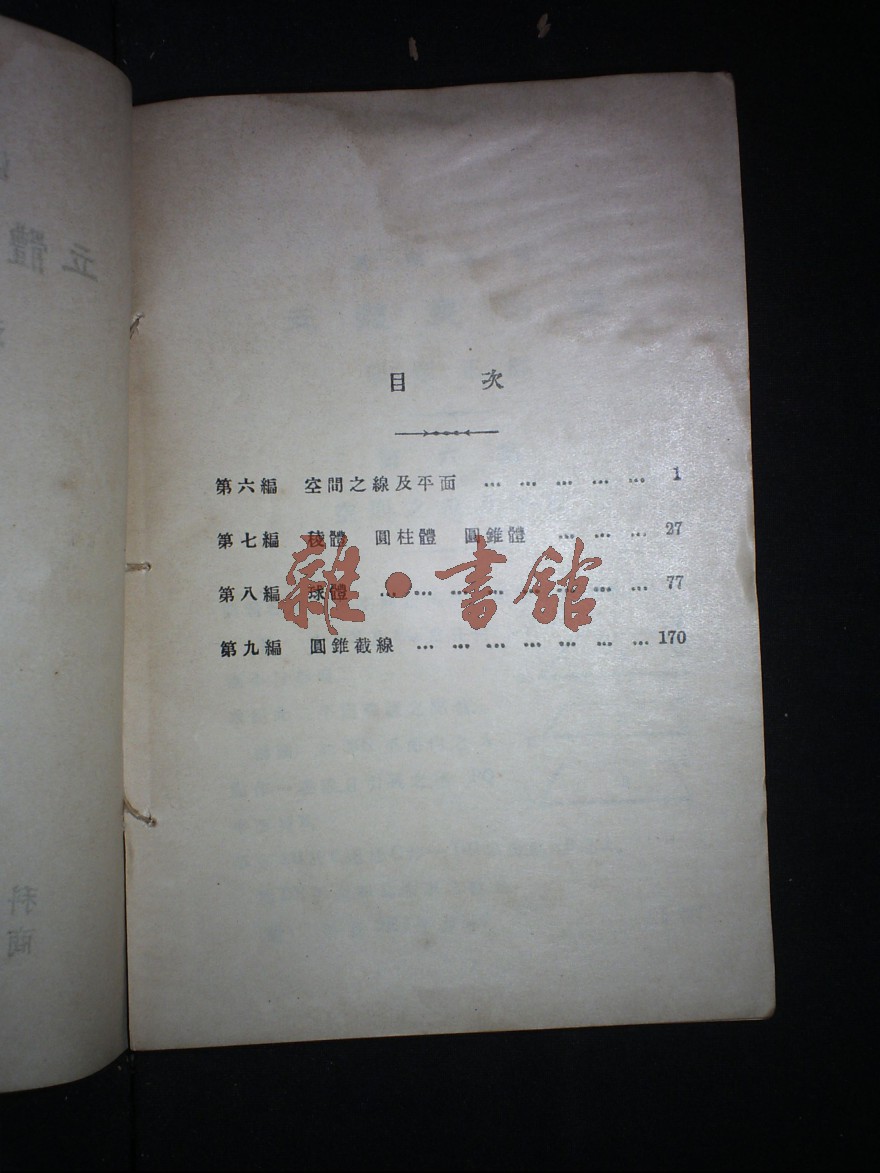 目 次
第六編 空間之線及平面 … … … … … 1
第七編 稜體 圓柱體 圓錐體 … … … 27
第八編 球體 … … … … … … … … 77
第九編 圓錐截線 … … … … … … … 170
雜·書館
立體
科